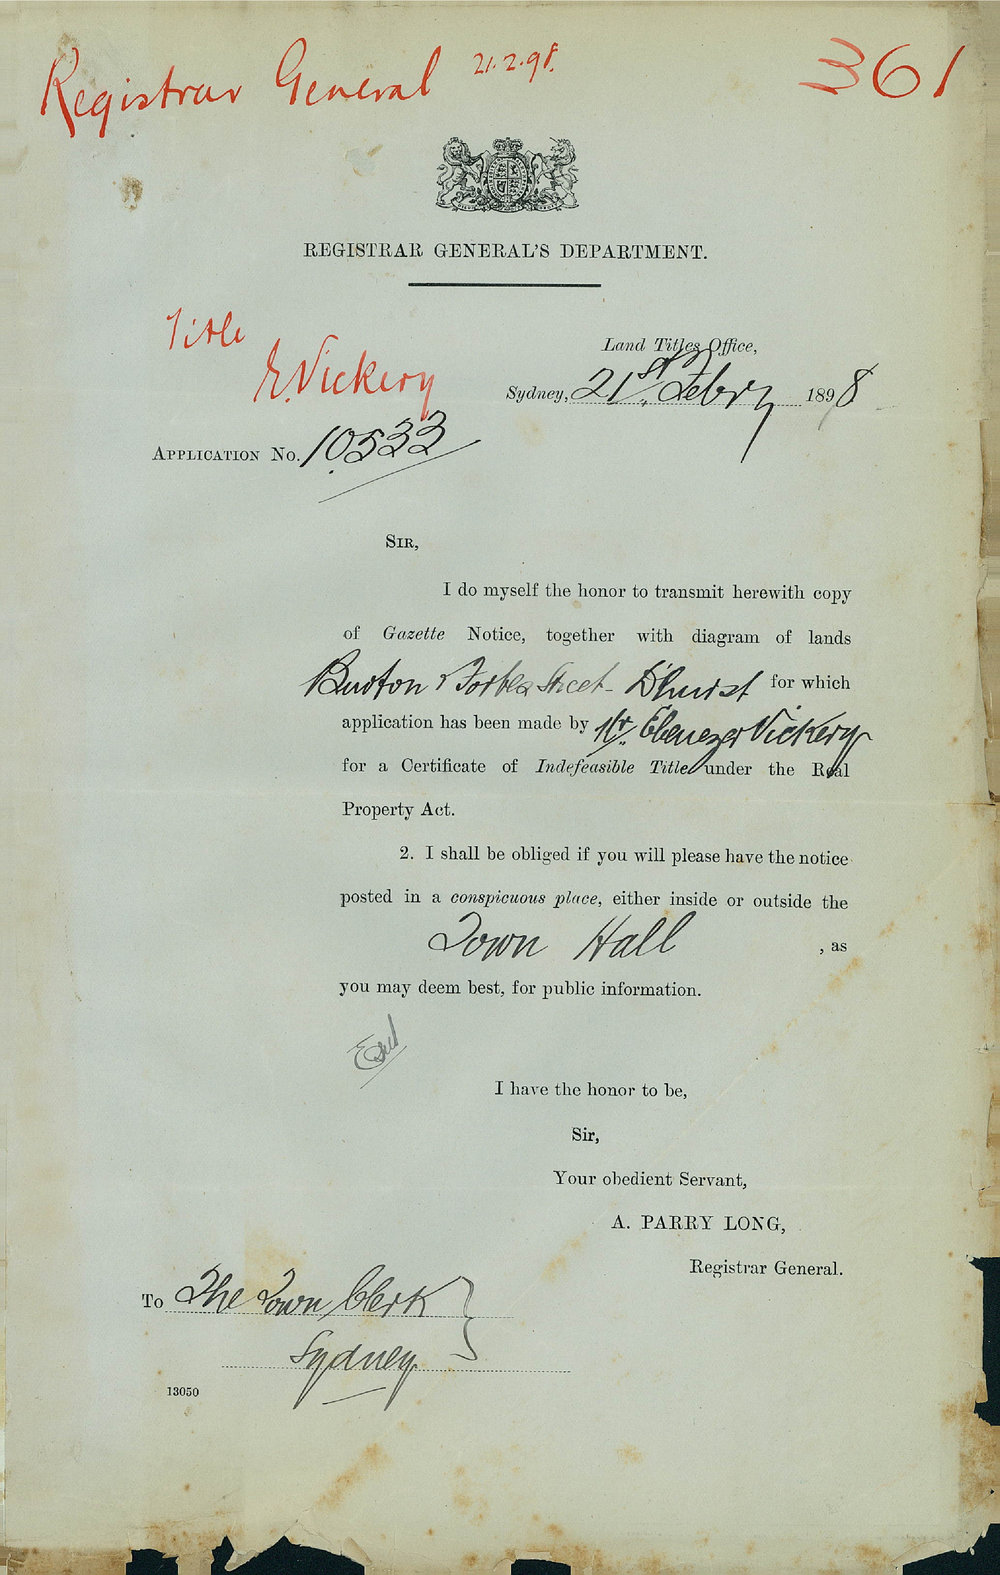 Registrar General 21.2.98. 361
REGISTRAR GENERAL'S DEPARTMENT.
Title
E. Vickery
Land Titles Office,
Sydney, 21st. Febry 1898
APPLICATION No. 10533
SIR,
I do myself the honor to transmit herewith copy
of Gazette Notice, together with diagram of lands
Burton & Forbes Street - D'hurst for which
application has been made by Mr. Ebenezer Vickery
for a Certificate of Indefeasible Title under the Real
Property Act.
2. I shall be obliged if you will please have the notice
posted in a conspicuous place, either inside or outside the
Town Hall , as
you may deem best, for public information.
I have the honor to be,
Sir,
Your obedient Servant,
A. PARRY LONG,
Registrar General.
To The Town Clerk
Sydney
13050